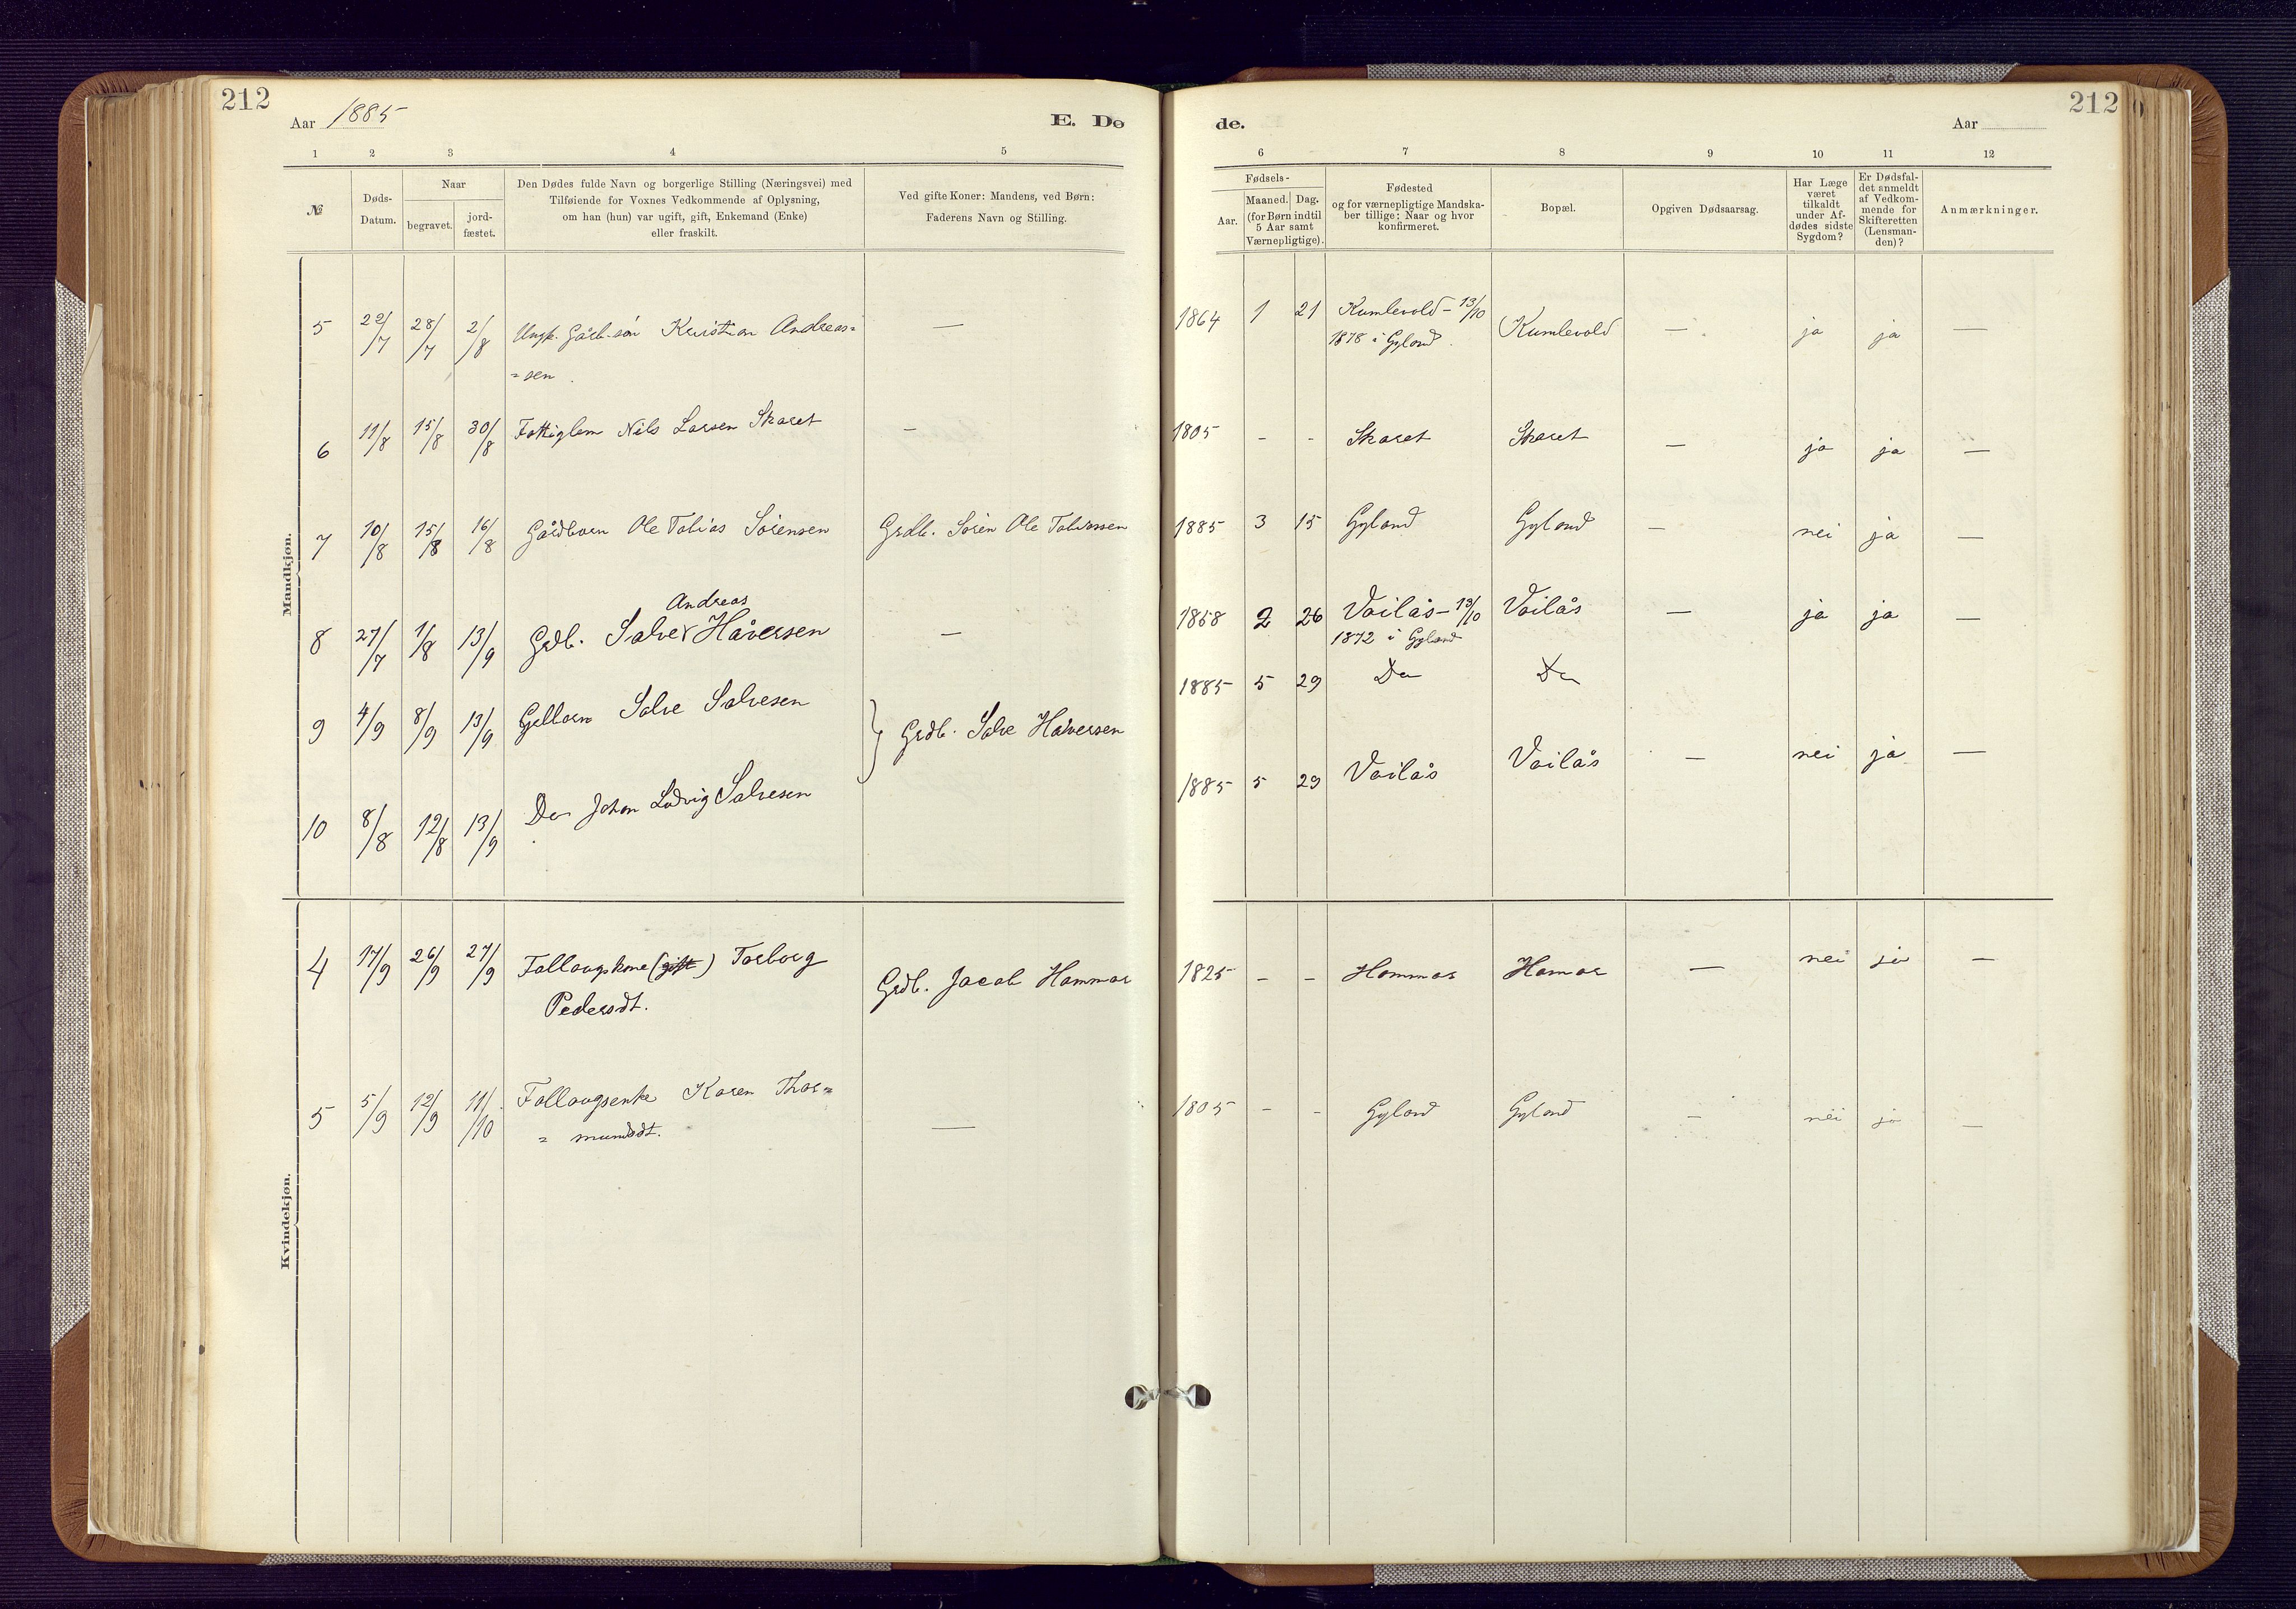 212
Aar 1885
E. Dø
1 2 3 4 5
№
Døds-
Datum.
Naar
begravet.
jord-
fæstet.
Den Dødes fulde Navn og borgerlige Stilling (Næringsvei) med
Tilføiende for Voxnes Vedkommende af Oplysning,
om han (hun) var ugift, gift, Enkemand (Enke)
eller fraskilt.
Ved gifte Koner: Mandens, ved Børn:
Faderens Navn og Stilling.
Mandkjøn.
5 22/7 28/7 2/8 Ungk. Gårb. søn Kristian Andreas= —
= sen.
6 11/8 15/8 30/8 Fattiglem Nils Larsen Skaret —
7 10/8 15/8 16/8 Gårdbarn Ole Tobias Sörensen Grdb. Sören Ole Tobiassen
Andreas
8 27/7 1/8 13/9 Grdb. Salve Håversen —
9 4/9 8/9 13/9 Gdbarn Salve Salvesen
Grdb. Salve Håversen
10 8/8 12/8 13/9 Do Johan Ludvig Salvesen
Kvindekjøn.
4 17/9 26/9 27/9 Føllaugskone (gift) Torborg
Pedersdt.
Grdb. Jacob Hammar
5 5/9 12/9 11/10 Føllaugsenke Karen Thor=
= mundsdt. —
212
de.
Aar
6 7 8 9 10 11 12
Fødsels-
Aar.
Maaned. Dag.
(for Børn indtil
5 Aar samt
Værnepligtige).
Fødested
og for værnepligtige Mandska-
ber tillige: Naar og hvor
konfirmeret.
Bopæl.
Opgiven Dødsaarsag.
Har Læge
været
tilkaldt
under Af-
dødes sidste
Sygdom?
Er Dødsfal-
det anmeldt
af Vedkom-
mende for
Skifteretten
(Lensman-
den)?
Anmærkninger.
1864 1 21 Kumlevold - 13/10 Kumlevold — ja ja —
1878 i Gyland.
1805 - - Skaret Skaret — ja ja —
1885 3 15 Gyland Gyland — nei ja —
1858 2 26 Voilås - 13/10 Voilås — ja ja —
1872 i Gyland
1885 5 29 Do Do
1885 5 29 Voilås Voilås — nei ja —
1825 - - Hammar Hamar — nei ja —
1805 - - Gyland Gyland — nei ja —